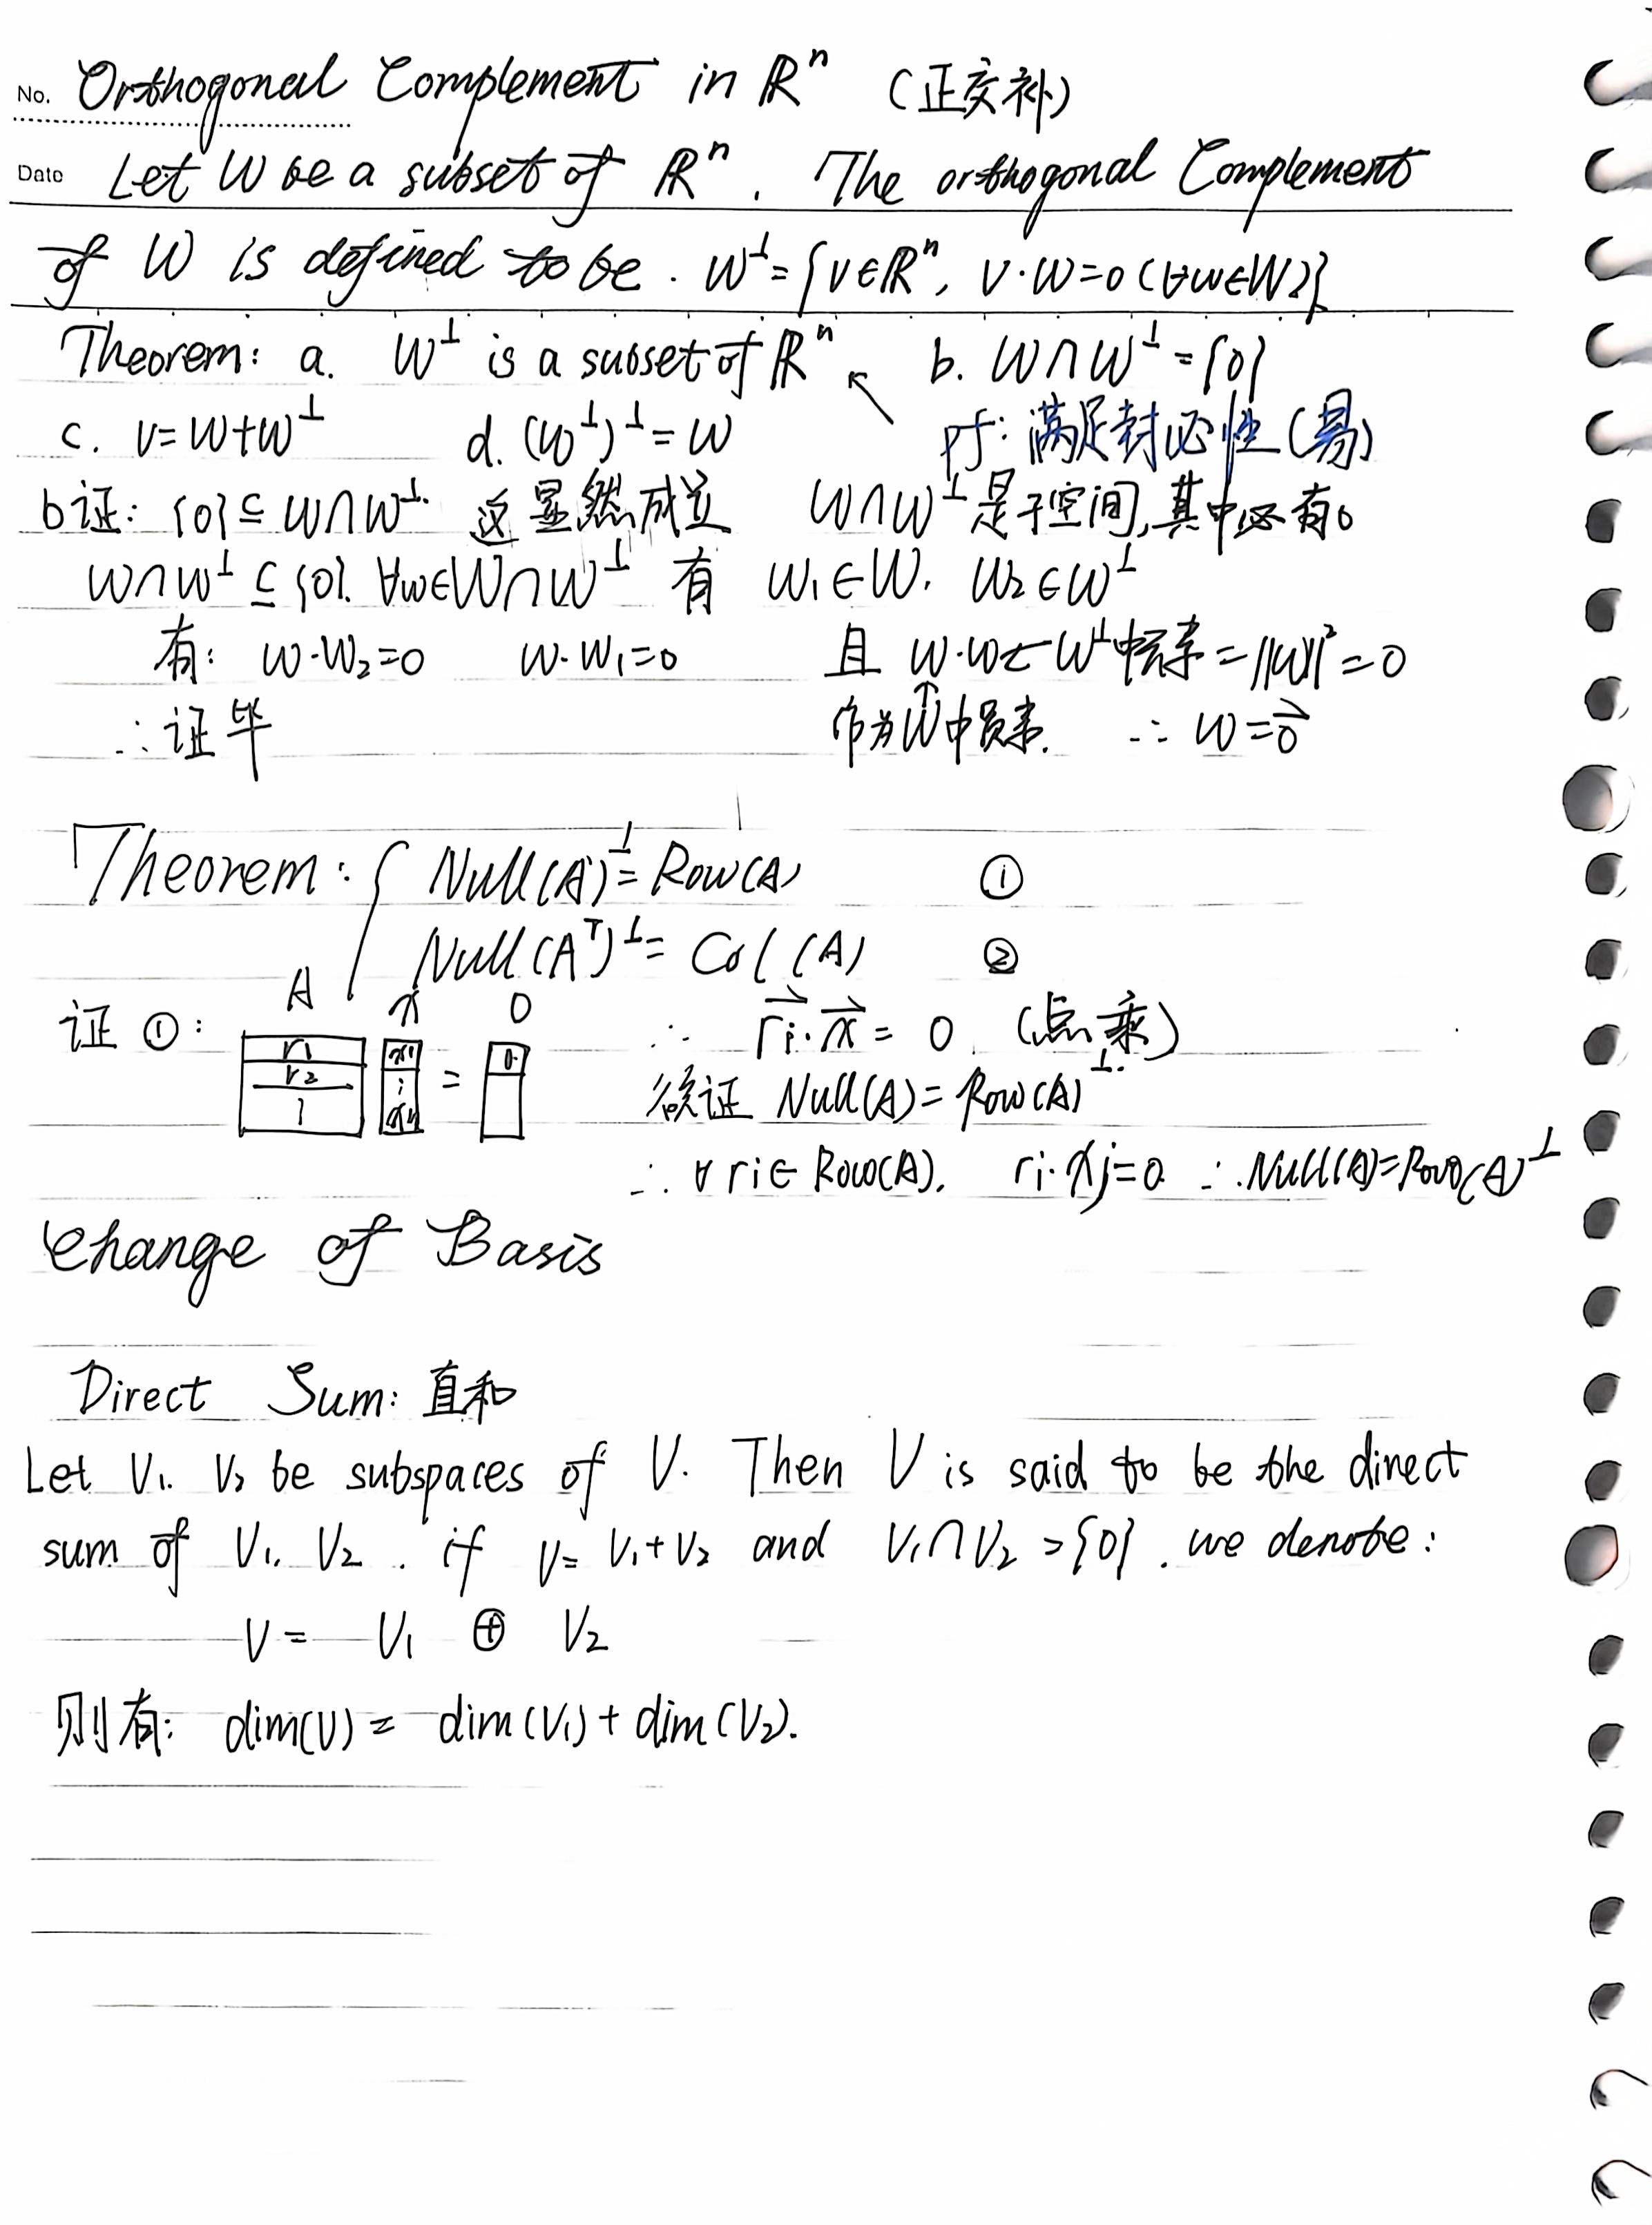 No. Orthogonal Complement in ℝⁿ (正交补)
Date Let W be a subset of ℝⁿ. The orthogonal Complement
of W is defined to be. W^⊥={v∈ℝⁿ, v·w=0(∀w∈W)}
Theorem: a. W^⊥ is a subset of ℝⁿ ↖ b. W∩W^⊥={0}
c. V=W+W^⊥ d. (W^⊥)^⊥=W pf: 满足封闭性(易)
b证: {0}⊆W∩W^⊥. 这显然成立 W∩W^⊥是子空间,其中必有0
W∩W^⊥⊆{0}. ∀w∈W∩W^⊥ 有 W₁∈W. W₂∈W^⊥
有: W·W₂=0 W·W₁=0 且 W·W←W^⊥中元素=||W||²=0
∴证毕 作为W中员素. ∴ W=0⃗
Theorem: { Null(A)^⊥=Row(A) ①
Null(A^T)^⊥= Col(A) ②
证①: A x 0 ∴ r⃗i·x⃗ = 0 (点乘)
r1 r2 ⋮ x1 ⋮ xn = 0 欲证 Null(A)=Row(A)^⊥.
∴ ∀ri∈Row(A). ri·xj=0 ∴Null(A)=Row(A)^⊥
Change of Basis
Direct Sum: 直和
Let V₁. V₂ be subspaces of V. Then V is said to be the direct
sum of V₁. V₂. if V= V₁+V₂ and V₁∩V₂={0}. we denote:
V= V₁ ⊕ V₂
则有: dim(V)= dim(V₁)+dim(V₂).